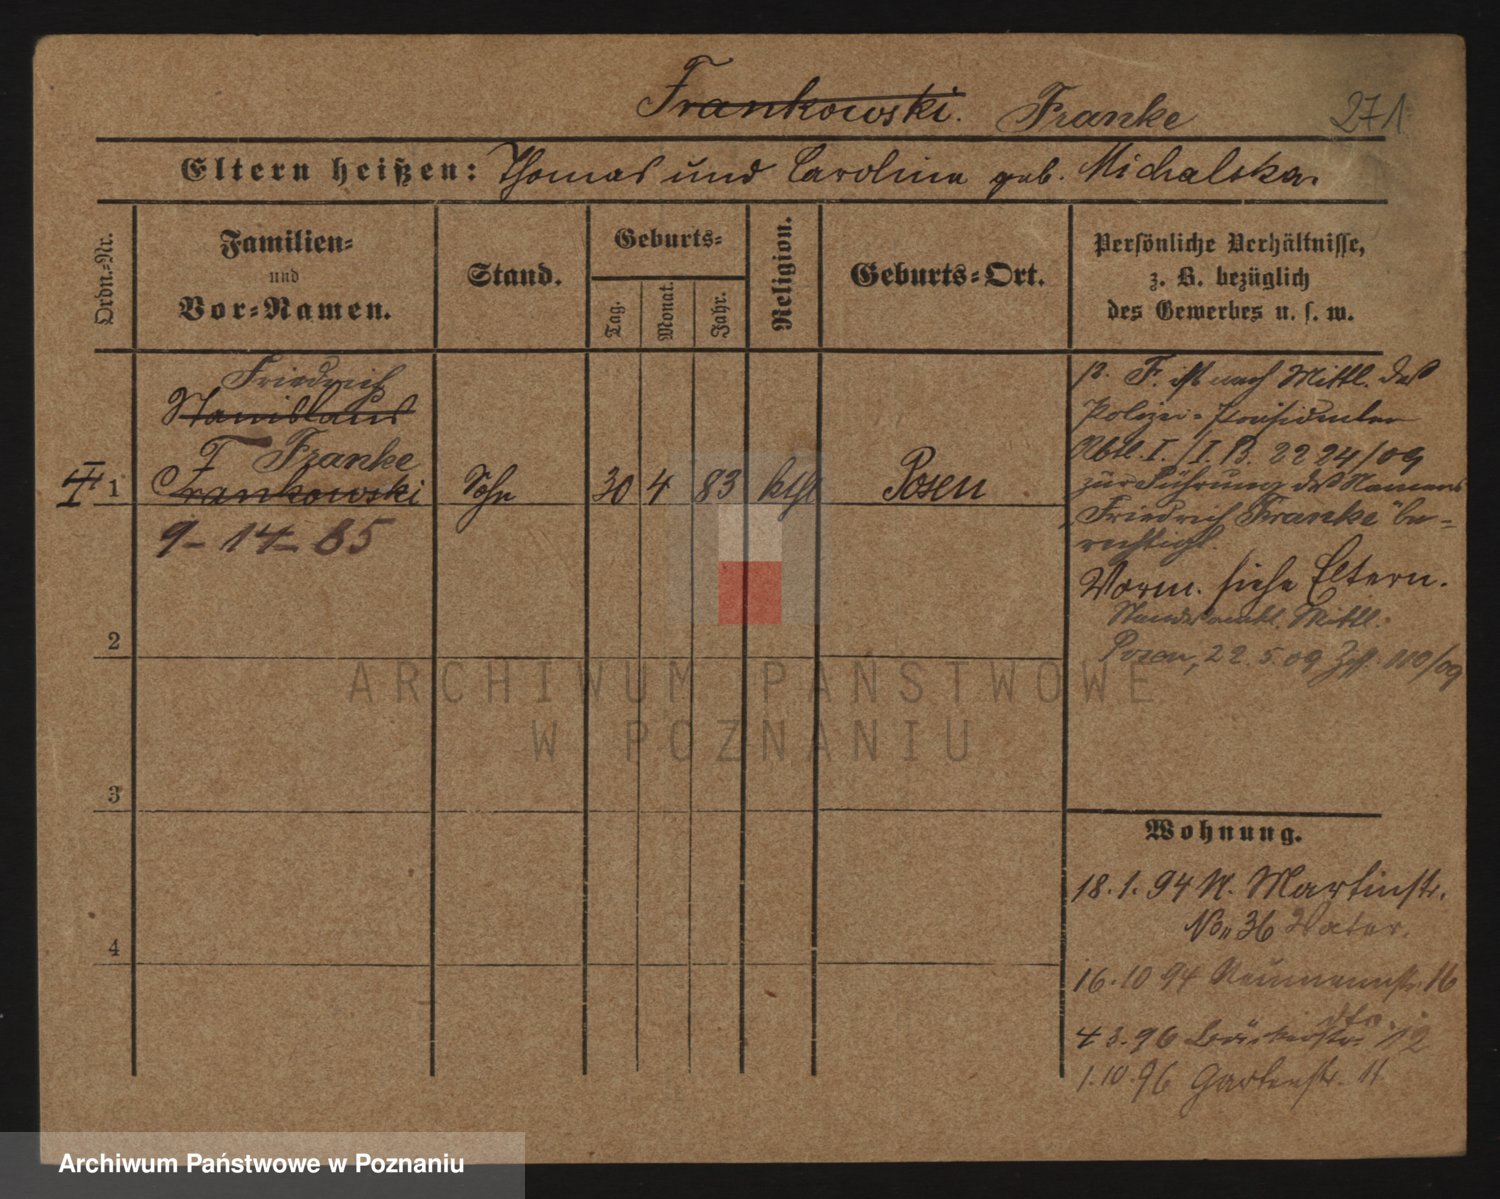 Frankowski. Franke 271
Eltern heißen: Thomas und Carolina geb. Michalska.
Ordn.-Nr.
Familien-
und
Vor-Namen.
Stand.
Geburts-
Tag.
Monat.
Jahr.
Religion.
Geburts-Ort.
Persönliche Verhältnisse,
z. B. bezüglich
des Gewerbes u. s. w.
Friedrich
Stanislaus
Franke
1 Frankowski Sohn 30 4 83 kth Posen
9-14-85
2
3
4
p. F. ist nach Mittl. des
Polizei-Präsidenten
Abtl. I. /I. B. 2224/09
zur Führung des Namens
"Friedrich Franke" be-
rechtigt.
Vorm. siehe Eltern.
Standesamtl. Mittl.
Posen, 22.5.09 110/09
Wohnung.
18.1.94 N. Martinstr.
No 36 Vater.
16.10 94 16
dto.
4 3.96 Bäckerstr. 12
1.10.96 Gartenstr. 11
ARCHIWUM PAŃSTWOWE
W POZNANIU
Archiwum Państwowe w Poznaniu